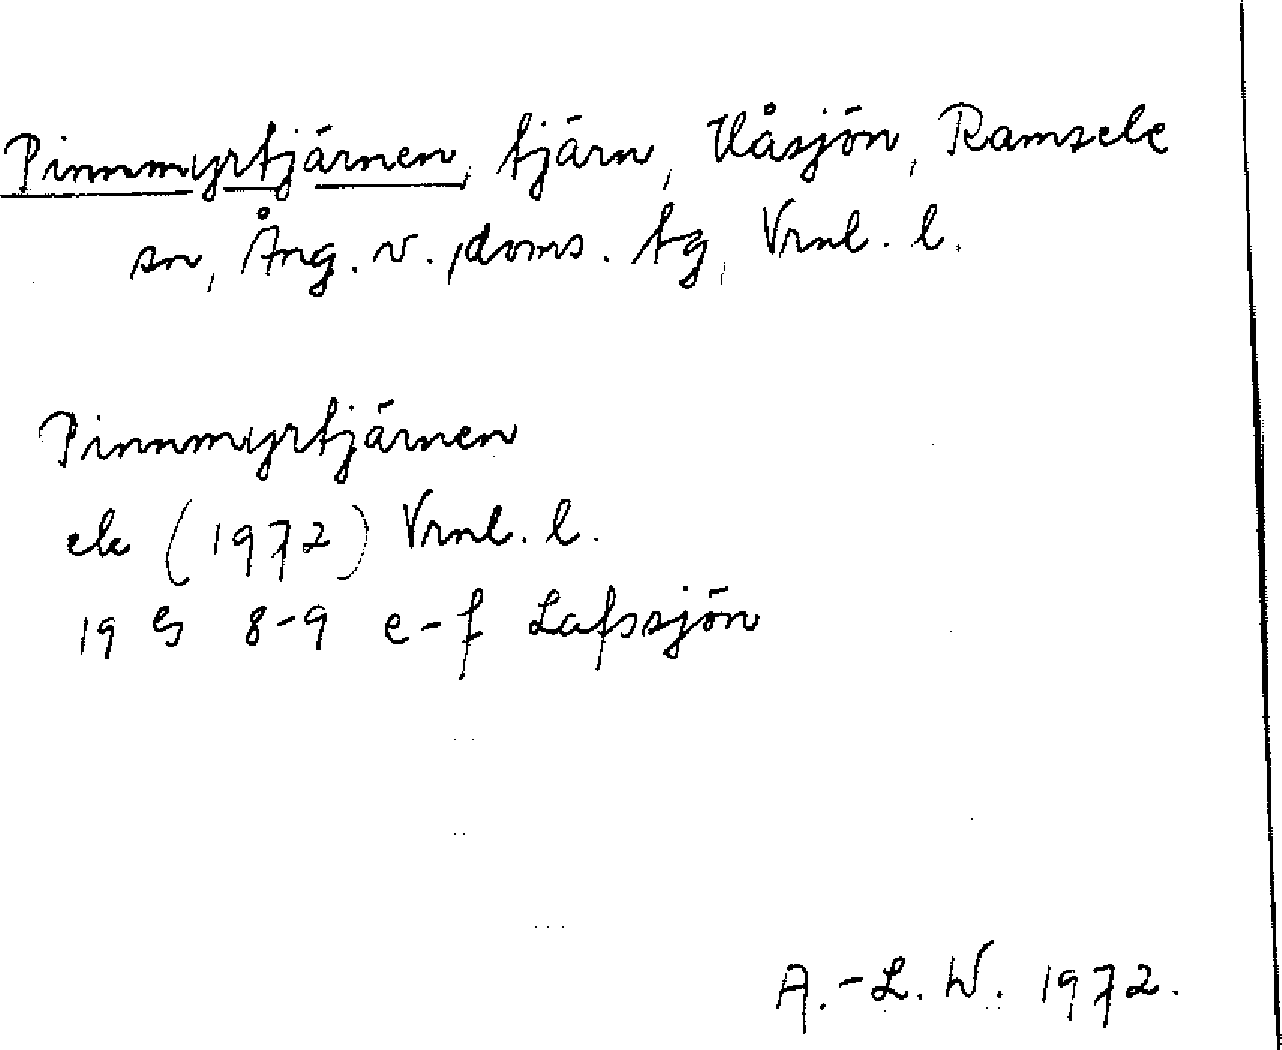 Pinnmyrtjärnen, tjärn, Våsjön, Ramsele
sn, Ång. v. doms. tg, Vrnl. l.
Pinnmyrtjärnen
ek (1972) Vrnl. l.
19 G 8-9 e-f Lafssjön
A.-L. W. 1972.